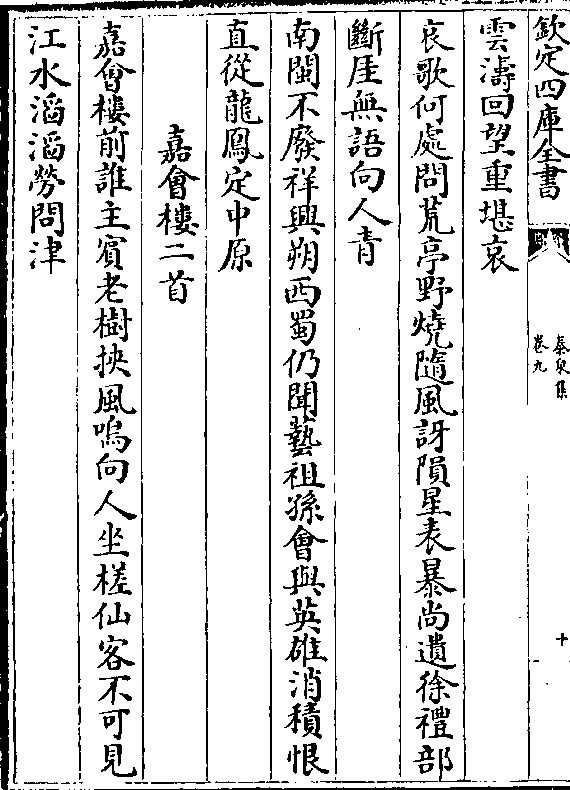 欽定四庫全書
泰泉集
卷九
十
雲濤回望重堪哀
哀歌何處問荒亭野燒隨風訝隕星表暴尚遺徐禮部
斷厓無語向人青
南閩不廢祥興朔西蜀仍聞藝祖孫會與英雄消積恨
直從龍鳳定中原
嘉會樓二首
嘉會樓前誰主賓老樹挾風嗚向人坐槎仙客不可見
江水滔滔勞問津